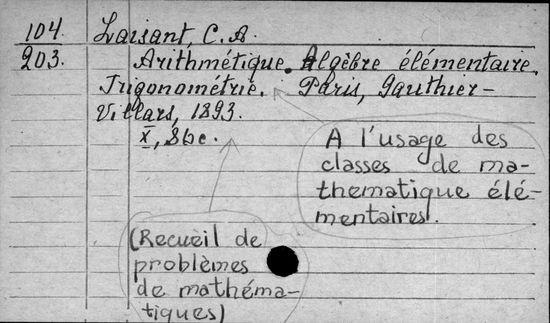 104. Laisant, C.A.
203. Arithmétique. Algèbre élémentaire.
Trigonométrie. Paris, Gauthier-
Villars, 1893.
X, 8bc.
A l'usage des
classes de ma-
thematique élé-
mentaires.
(Recueil de
problèmes
de mathéma-
tiques)